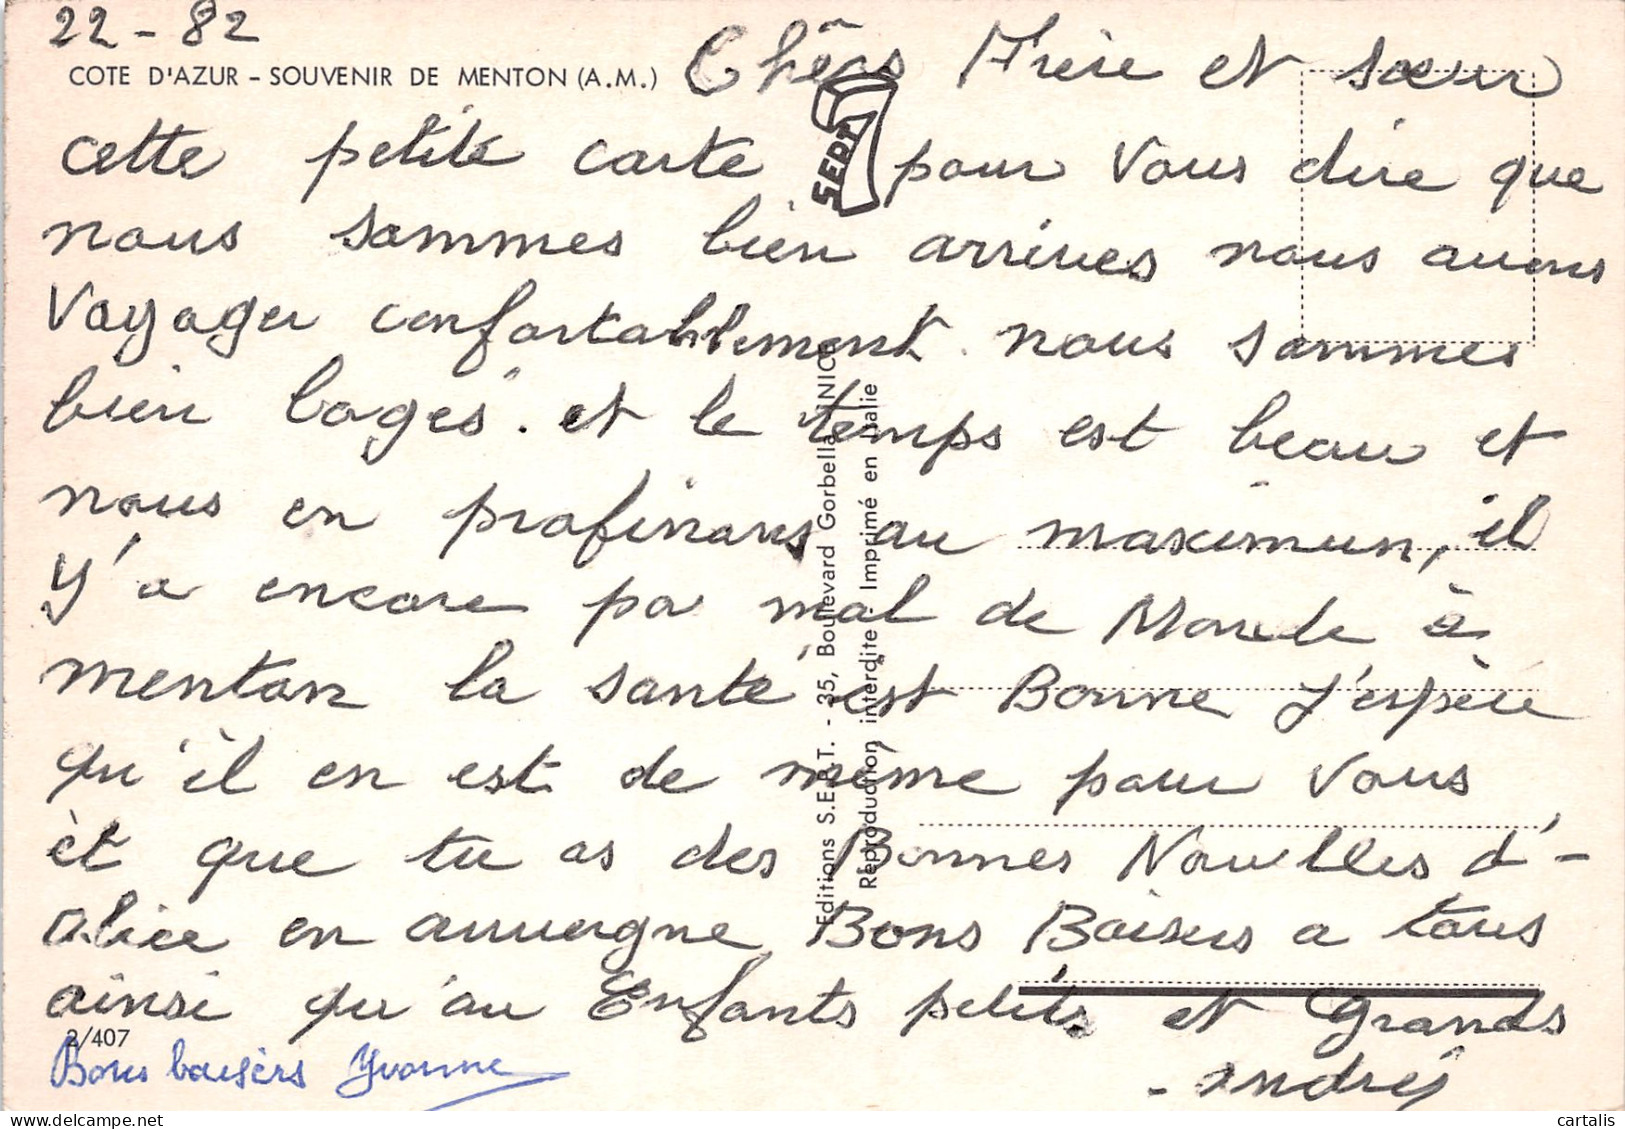 22-82
COTE D'AZUR - SOUVENIR DE MENTON (A.M.)
Chèrs Frère et sœur
cette petite carte pour vous dire que
nous sommes bien arrives nous avons
Voyager confortablement. nous sommes
bien logés. et le temps est beau et
nous en profinons au maximun, il
Y'a encore pa mal de Monde à
menton la santé est Bonne J'espère
qu'il en est de même pour Vous,
èt que tu as des Bonnes Nouvelles d'-
alice en auvergne Bons Baisers a tous
ainsi qu'au Enfants petits et Grands
- andré
2/407
Bons baisèrs Yvonne
SERT
Editions S.E.R.T. - 35, Boulevard Gorbella - NICE
Reproduction interdite - Imprimé en Italie
cartalis